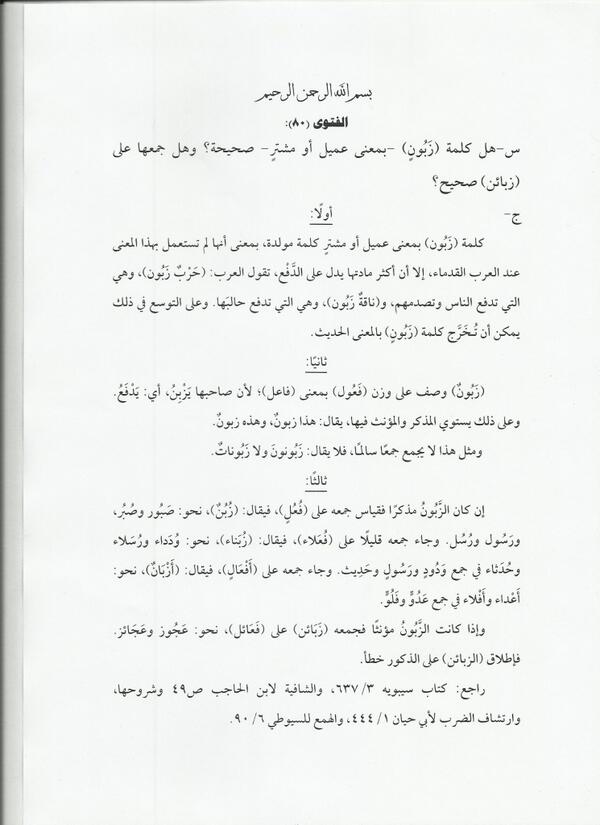 بسم الله الرحمن الرحيم
الفتوى (٨٠):
س-هل كلمة (زَبُونٍ) -بمعنى عميل أو مشترٍ- صحيحة؟ وهل جمعها على
(زبائن) صحيح؟
ج- أولًا:
كلمة (زَبُون) بمعنى عميل أو مشترٍ كلمة مولدة، بمعنى أنها لم تستعمل بهذا المعنى
عند العرب القدماء، إلا أن أكثر مادتها يدل على الدَّفْع، تقول العرب: (حَرْبٌ زَبُون)، وهي
التي تدفع الناس وتصدمهم، و(ناقةٌ زَبُون)، وهي التي تدفع حالبَها. وعلى التوسع في ذلك
يمكن أن تُخَرَّج كلمة (زَبُونٍ) بالمعنى الحديث.
ثانيًا:
(زَبُونٌ) وصف على وزن (فَعُول) بمعنى (فاعل)؛ لأن صاحبها يَزْبِنُ، أي: يَدْفَعُ.
وعلى ذلك يستوي المذكر والمؤنث فيها، يقال: هذا زبونٌ، وهذه زبونٌ.
ومثل هذا لا يجمع جمعًا سالمًا، فلا يقال: زَبُونونَ ولا زَبُوناتٌ.
ثالثًا:
إن كان الزَّبُونُ مذكرًا فقياس جمعه على (فُعُلٍ)، فيقال: (زُبُنٌ)، نحو: صَبُور وصُبُر،
ورَسُول ورُسُل. وجاء جمعه قليلًا على (فُعَلاء)، فيقال: (زُبَناء)، نحو: وُدَداء ورُسَلاء
وحُدَثاء في جمع وَدُودٍ ورَسُولٍ وحَدِيث. وجاء جمعه على (أَفْعَالٍ)، فيقال: (أَزْبَانٌ)، نحو:
أَعْداء وأَفْلاء في جمع عَدُوٍّ وفَلُوٍّ.
وإذا كانت الزَّبُونُ مؤنثًا فجمعه (زَبَائن) على (فَعَائل)، نحو: عَجُوز وعَجَائز.
فإطلاق (الزبائن) على الذكور خطأ.
راجع: كتاب سيبويه ٣/ ٦٣٧، والشافية لابن الحاجب ص٤٩ وشروحها،
وارتشاف الضرب لأبي حيان ١/ ٤٤٤، والهمع للسيوطي ٦/ ٩٠.